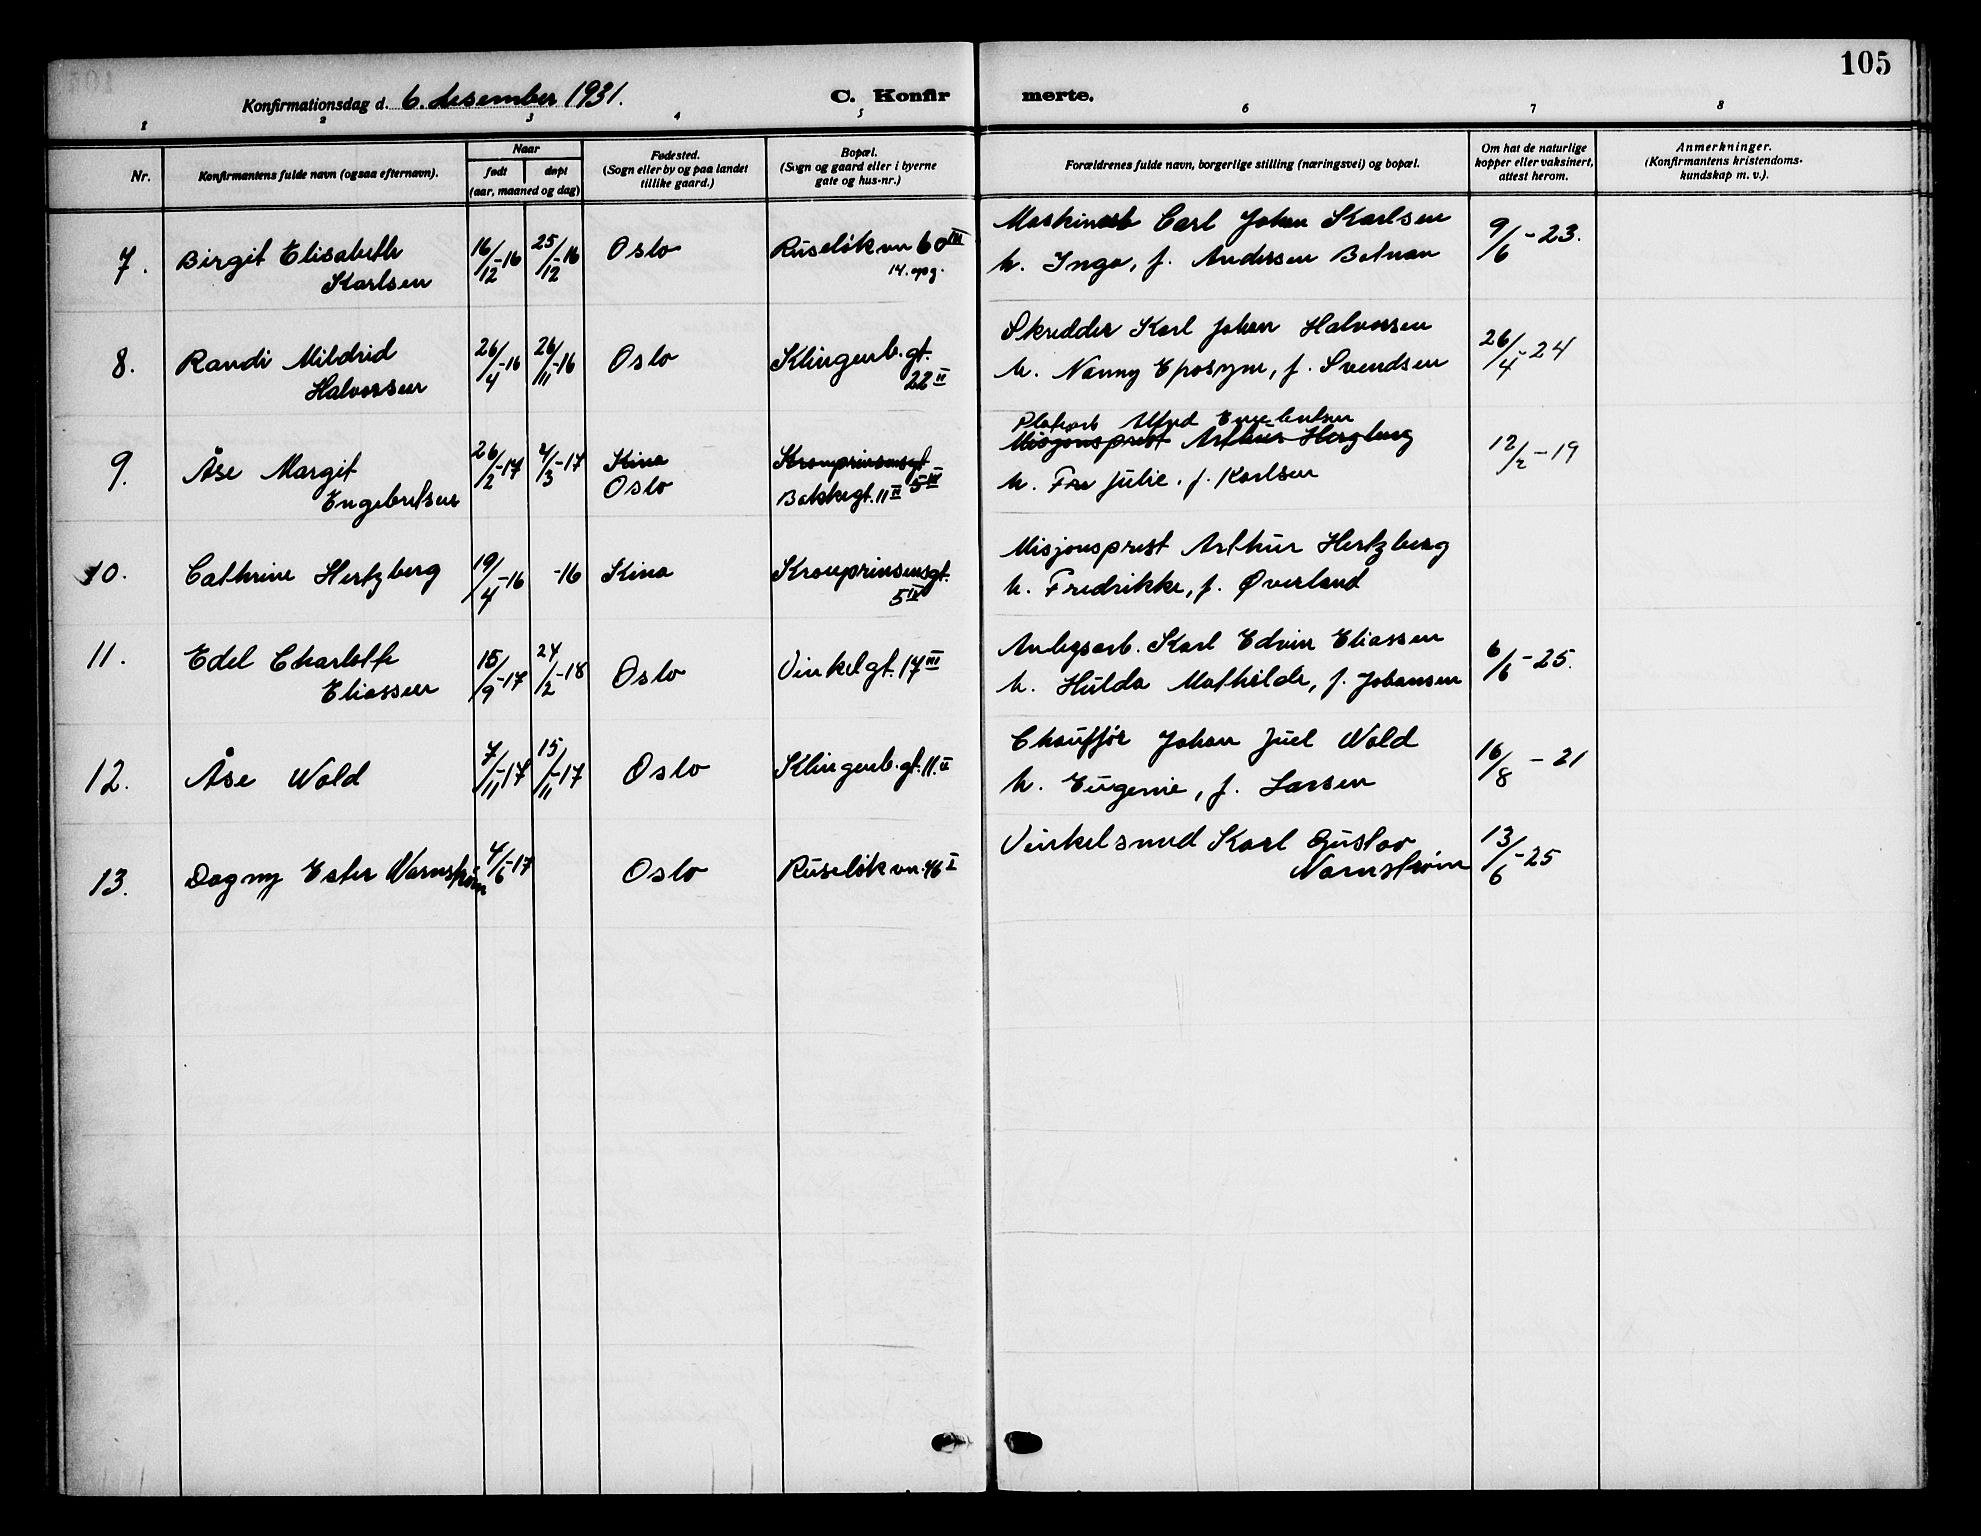 105
Konfirmationsdag d. 6. desember 1931.
C. Konfir
merte.
1 2 3 4 5 6 7 8
Nr.
Konfirmantens fulde navn (ogsaa efternavn).
Naar
født
døpt
(aar, maaned og dag)
Fødested.
(Sogn eller by og paa landet
tillike gaard.)
Bopæl.
(Sogn og gaard eller i byerne
gate og hus-nr.)
Forældrenes fulde navn, borgerlige stilling (næringsvei) og bopæl.
Om hat de naturlige
kopper eller vaksinert,
attest herom.
Anmerkninger.
(Konfirmantens kristendoms-
kundskap m. v.).
7. Birgit Elisabeth 16/12-16 25/12-16 Oslo Ruseløkvn 60 III Maskinarb Carl Johan Karlsen 9/6-23.
Karlsen 14. opg. h. Inga, f. Andersen
8. Randi Mildrid 26/4-16 26/11-16 Oslo Klingenb.gt. Skredder Karl Johan Halvorsen 26/4-24
Halvorsen 22 II h. Nanny Eposyne, f. Svendsen
Platearb Alfred Engebretsen
9. Åse Margit 26/2-17 4/3-17 Kina Kronprinsensgt Misjonsprest Arthur Hergberg 12/2-19
Oslo 5 IV
Engebretsen Bakkegt. 11 II h. Fre Julie, f. Karlsen
10. Cathrine Hertzberg 19/4-16 -16 Kina Kronprinsensgt. Misjonsprest Arthur Hertzberg
5 IV h. Fredrikke, f. Øverland
11. Edel Charlotte 15/9-17 24/2-18 Oslo Vinkelgt. 17 III Anlegsarb. Karl Edvin Eliassen 6/6-25.
Eliassen h. Hulda Mathilde, f. Johansen
12. Åse Wold 7/11-17 15/11-17 Oslo Klingenb.gt. 11. II Chauffør Johan Juel Wold 16/8-21
h. Eugenie, f. Larsen
13. Dagny Ester Warnstrøm 4/6-17 Oslo Ruseløkvn. 46 I Vinkelsmed Karl Gustav 13/6-25
Warnstrøm